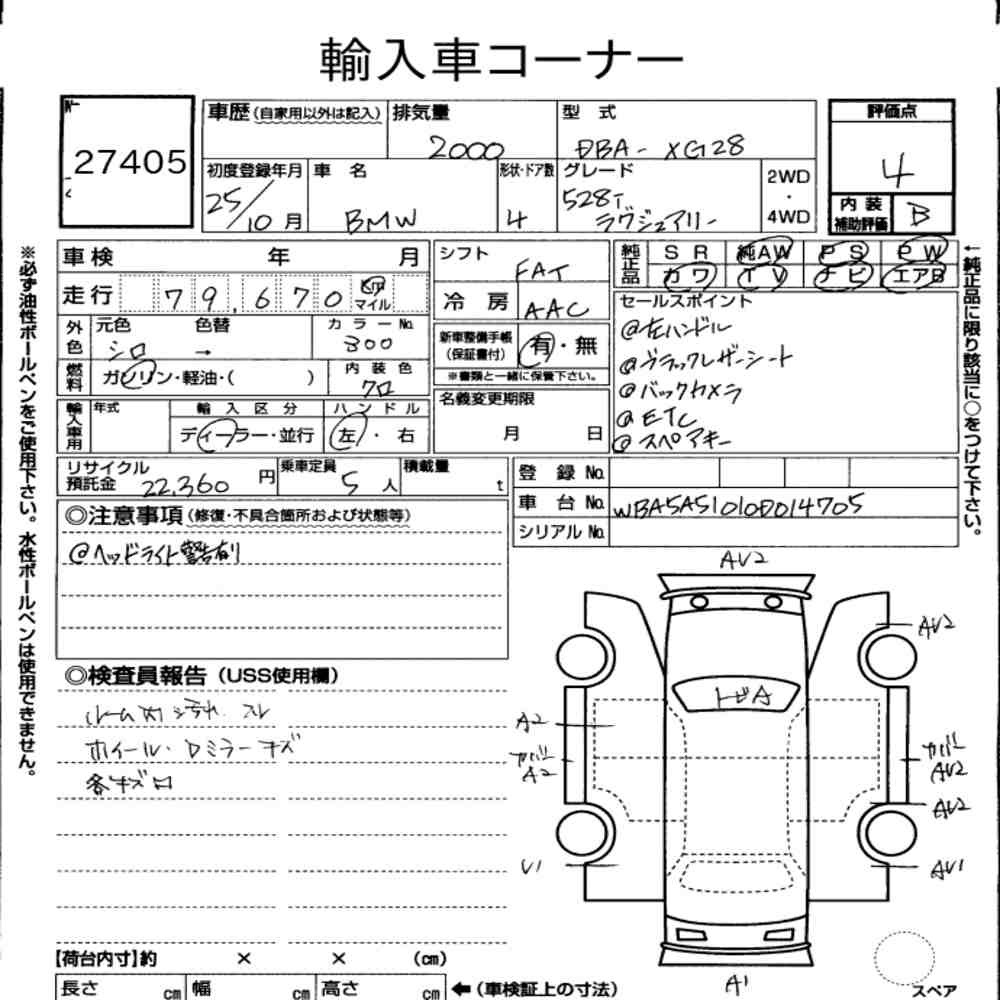 輸入車コーナー
27405
車歴(自家用以外は記入)
排気量
2000
型 式
DBA- XG28
評価点
4
内装補助評価
B
初度登録年月
25/10月
車 名
BMW
形状・ドア数
4
グレード
528i
ラグジュアリー
2WD
・
4WD
車検 年 月
走行 79,670 km マイル
シフト
FAT
冷 房
AAC
純正品
SR 純AW PS PW
カワ TV ナビ エアB
外色
元色 色替
シロ →
カラーNo.
300
燃料
ガソリン・軽油・( )
内装色
クロ
新車整備手帳
(保証書付)
有・無
※書類と一緒に保管下さい。
名義変更期限
月 日
セールスポイント
@左ハンドル
@ブラックレザーシート
@バックカメラ
@ETC
@スペアキー
輸入車用
年式
輸入区分
ディーラー・並行
ハンドル
左・右
リサイクル預託金
22,360円
乗車定員
5人
積載量
t
登録No.
車台No. WBA5A51010D014705
シリアルNo.
◎注意事項(修復・不具合箇所および状態等)
@ヘッドライト警告有り
◎検査員報告(USS使用欄)
ホイール・Dミラーキズ
各キズ
AV2
AV2
トビA
A2
カバー
A2
カバー
AV2
AV2
U1
AV1
A1
スペア
【荷台内寸】約 × × (cm)
長さ cm 幅 cm 高さ cm
←(車検証上の寸法)
※必ず油性ボールペンをご使用下さい。水性ボールペンは使用できません。
←純正品に限り該当に○をつけて下さい。